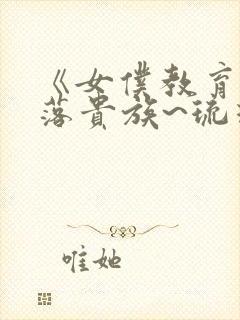 《女僕教育
落貴族~琉
唯她